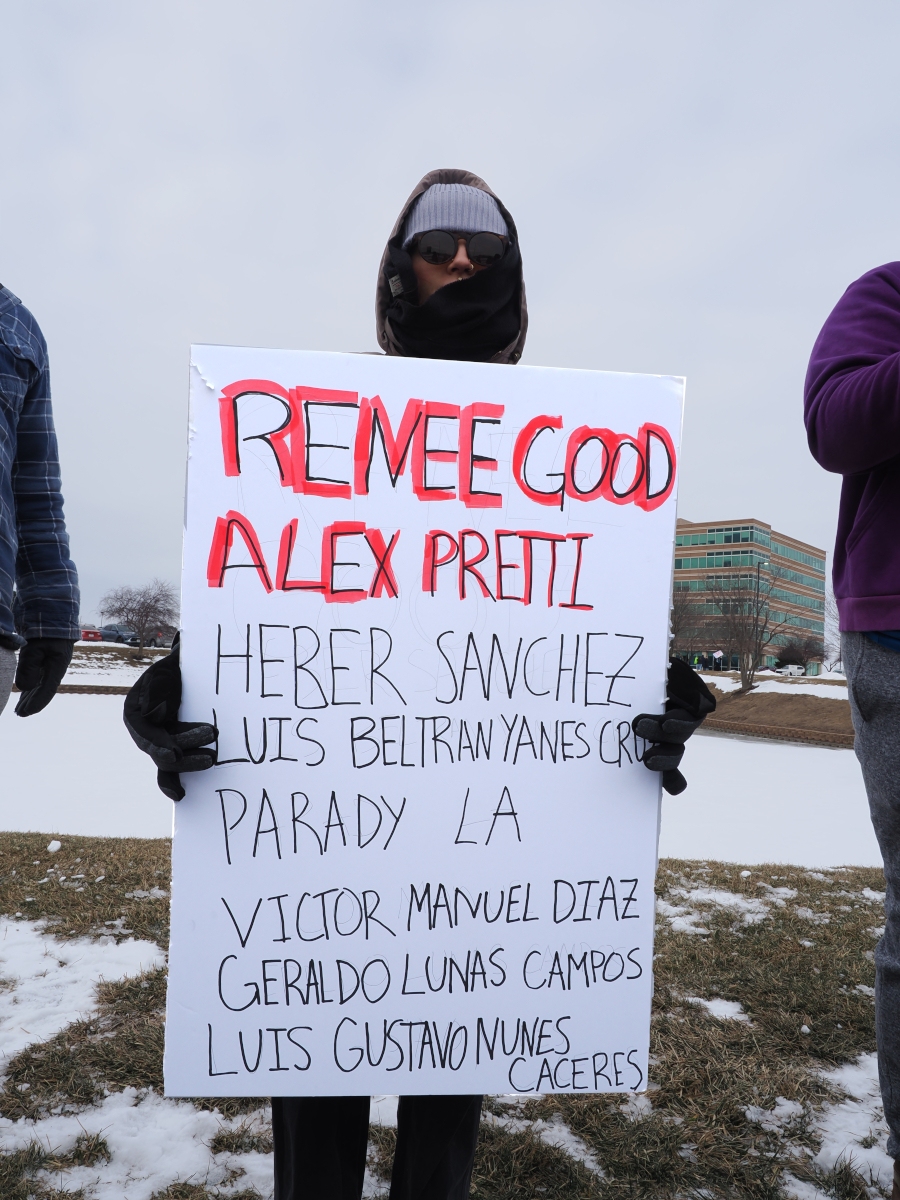 RENEE GOOD
ALEX PRETTI
HEBER SANCHEZ
LUIS BELTRAN YANES CRU
PARADY LA
VICTOR MANUEL DIAZ
GERALDO LUNAS CAMPOS
LUIS GUSTAVO NUNES
CACERES